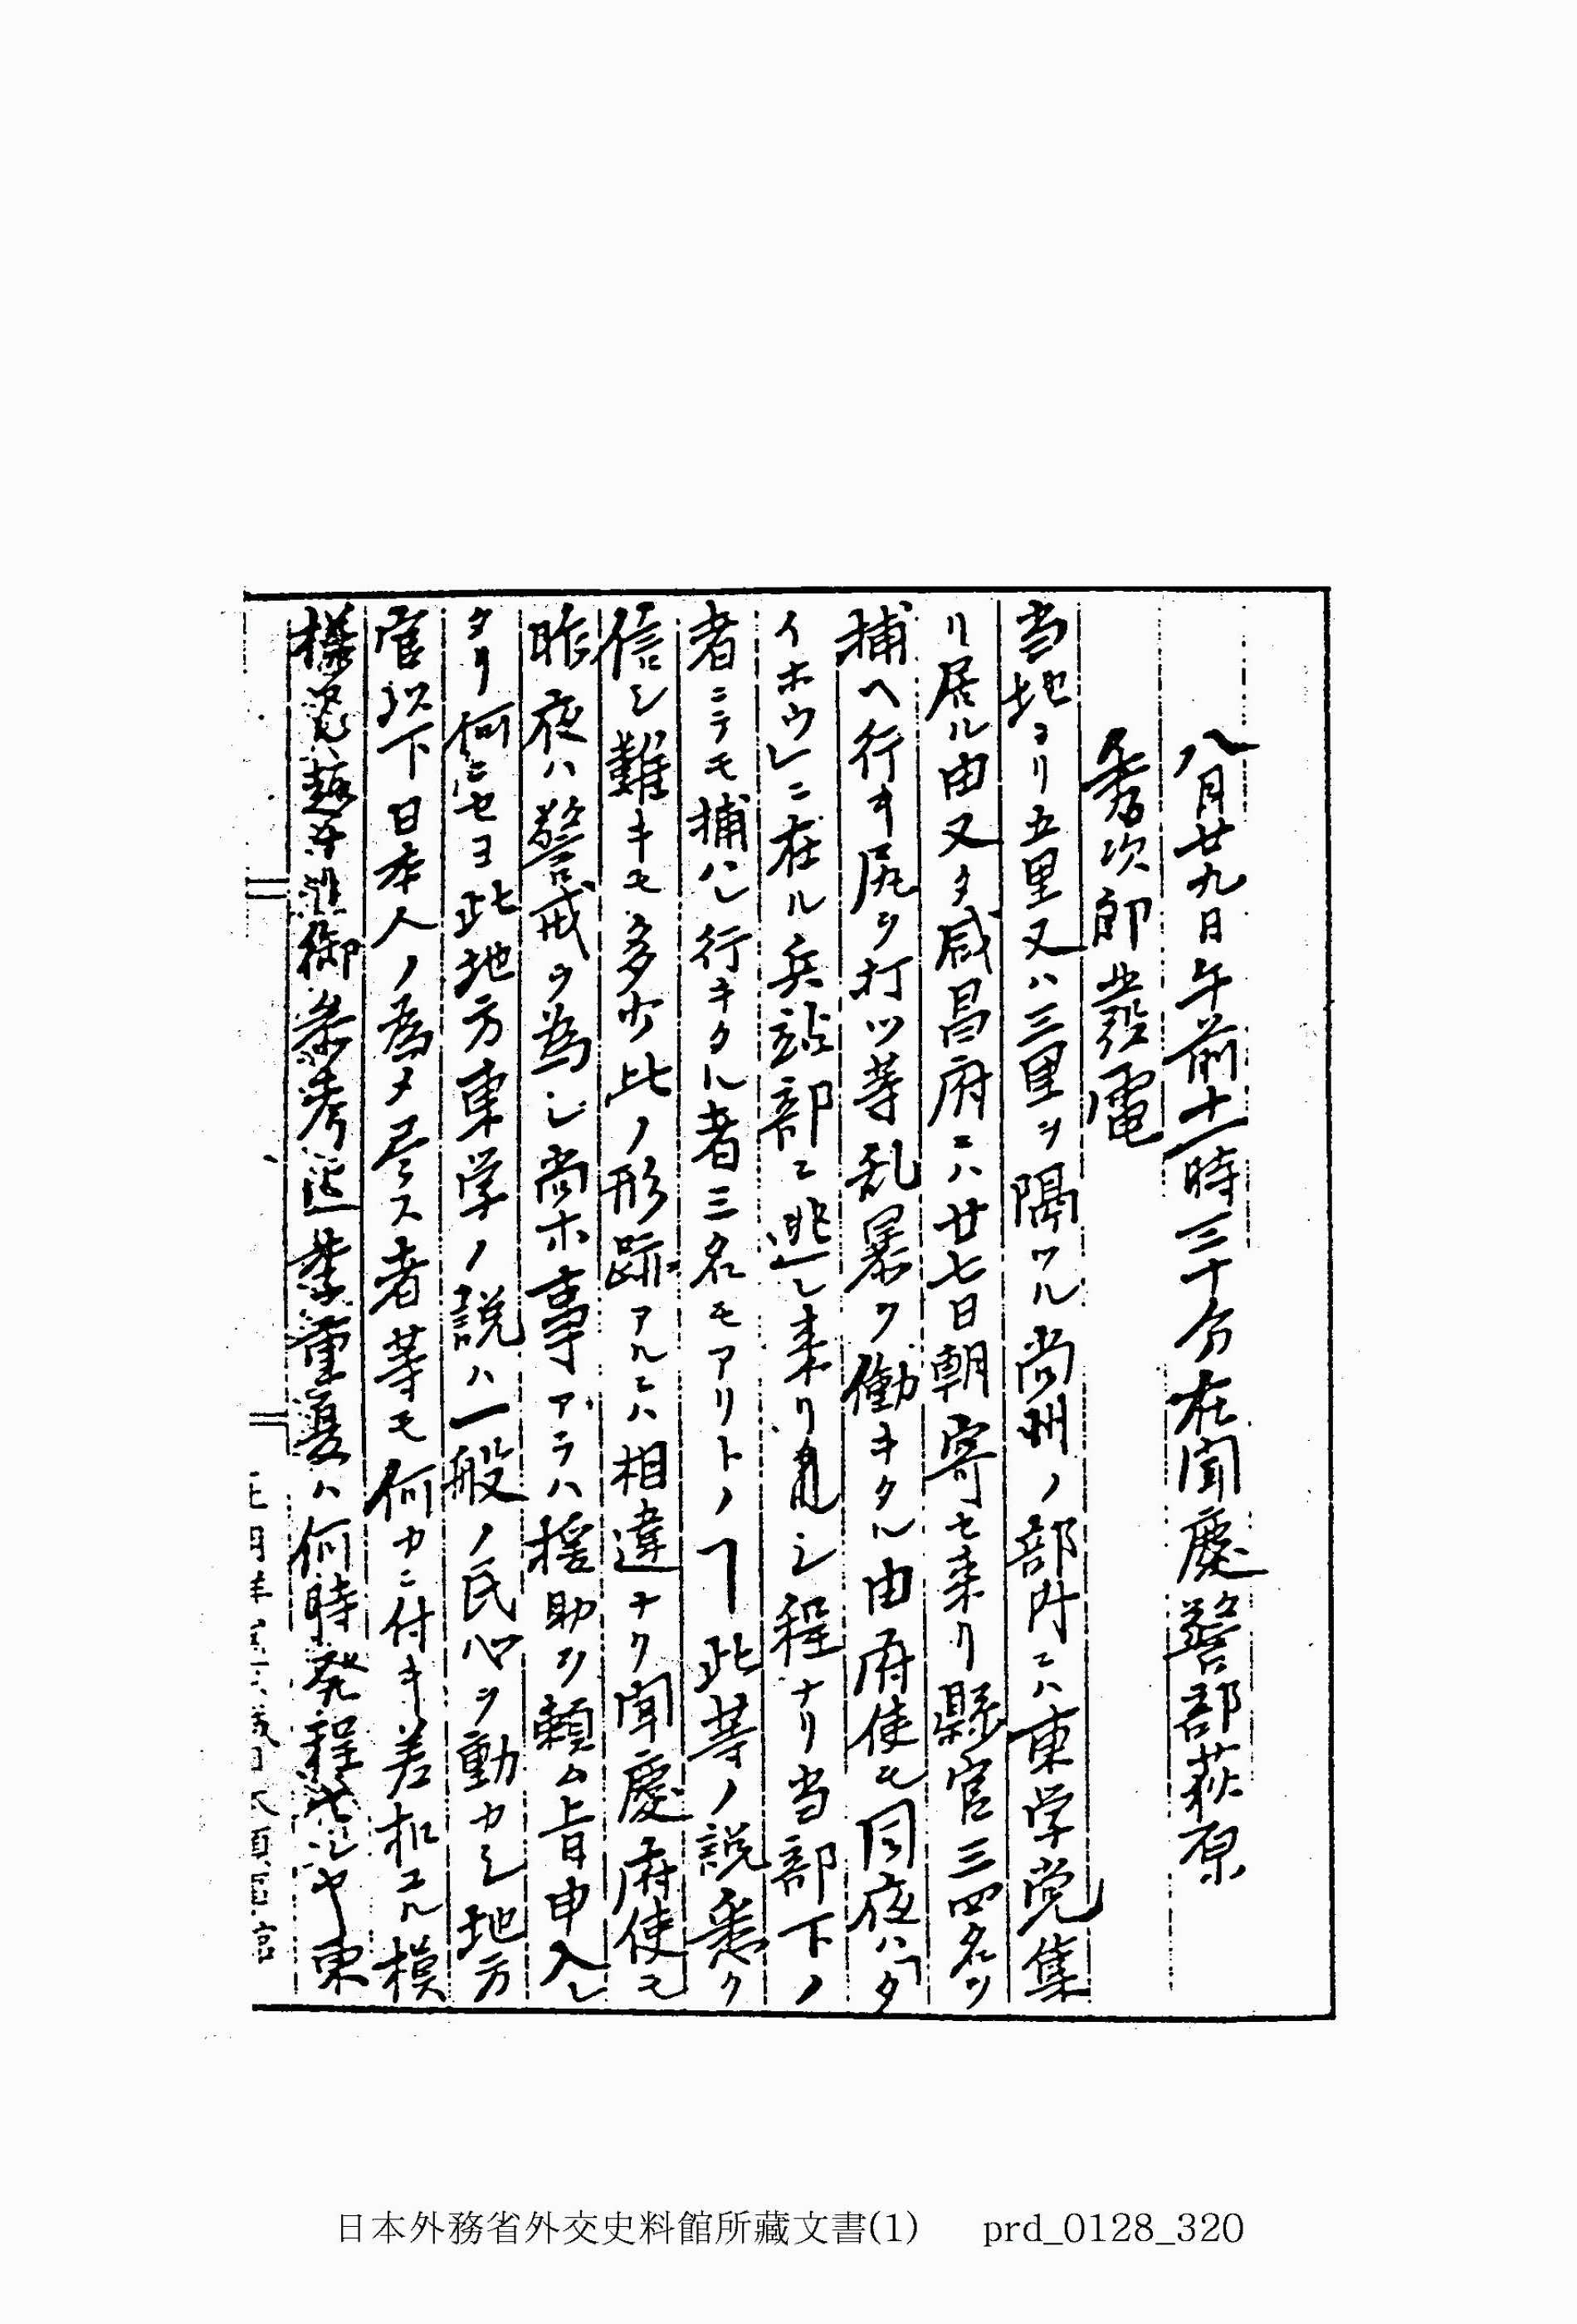 八月廿九日午前十一時三十分在聞慶警部荻原
秀次郎發電
当地ヨリ五里又ハ三里ヲ隔ツル尚州ノ部内ニハ東学党集
リ居ル由又タ咸昌府ニハ廿七日朝寄セ来リ縣官三四名ヲ
捕ヘ行キ尻ヲ打ツ等乱暴ヲ働キタル由府使モ同夜ハ「タ
イホウ」ニ在ル兵站部ニ逃レ来リ シ程ナリ当部下ノ
者ニテモ捕ハレ行キタル者三名モアリトノヿ此等ノ説悉ク
信シ難キモ多少此ノ形跡アルニハ相違ナク聞慶府使モ
昨夜ハ警戒ヲ為シ尚ホ事アラハ援助ヲ頼ム旨申入レ
タリ何ニセヨ此地方東学ノ説ハ一般ノ民心ヲ動カシ地方
官以下日本人ノ為メ尽ス者等モ何カニ付キ差扣エル模
様 御参考 李重夏ハ何時発程セシヤ東
日本外務省外交史料館所藏文書(1) prd_0128_320